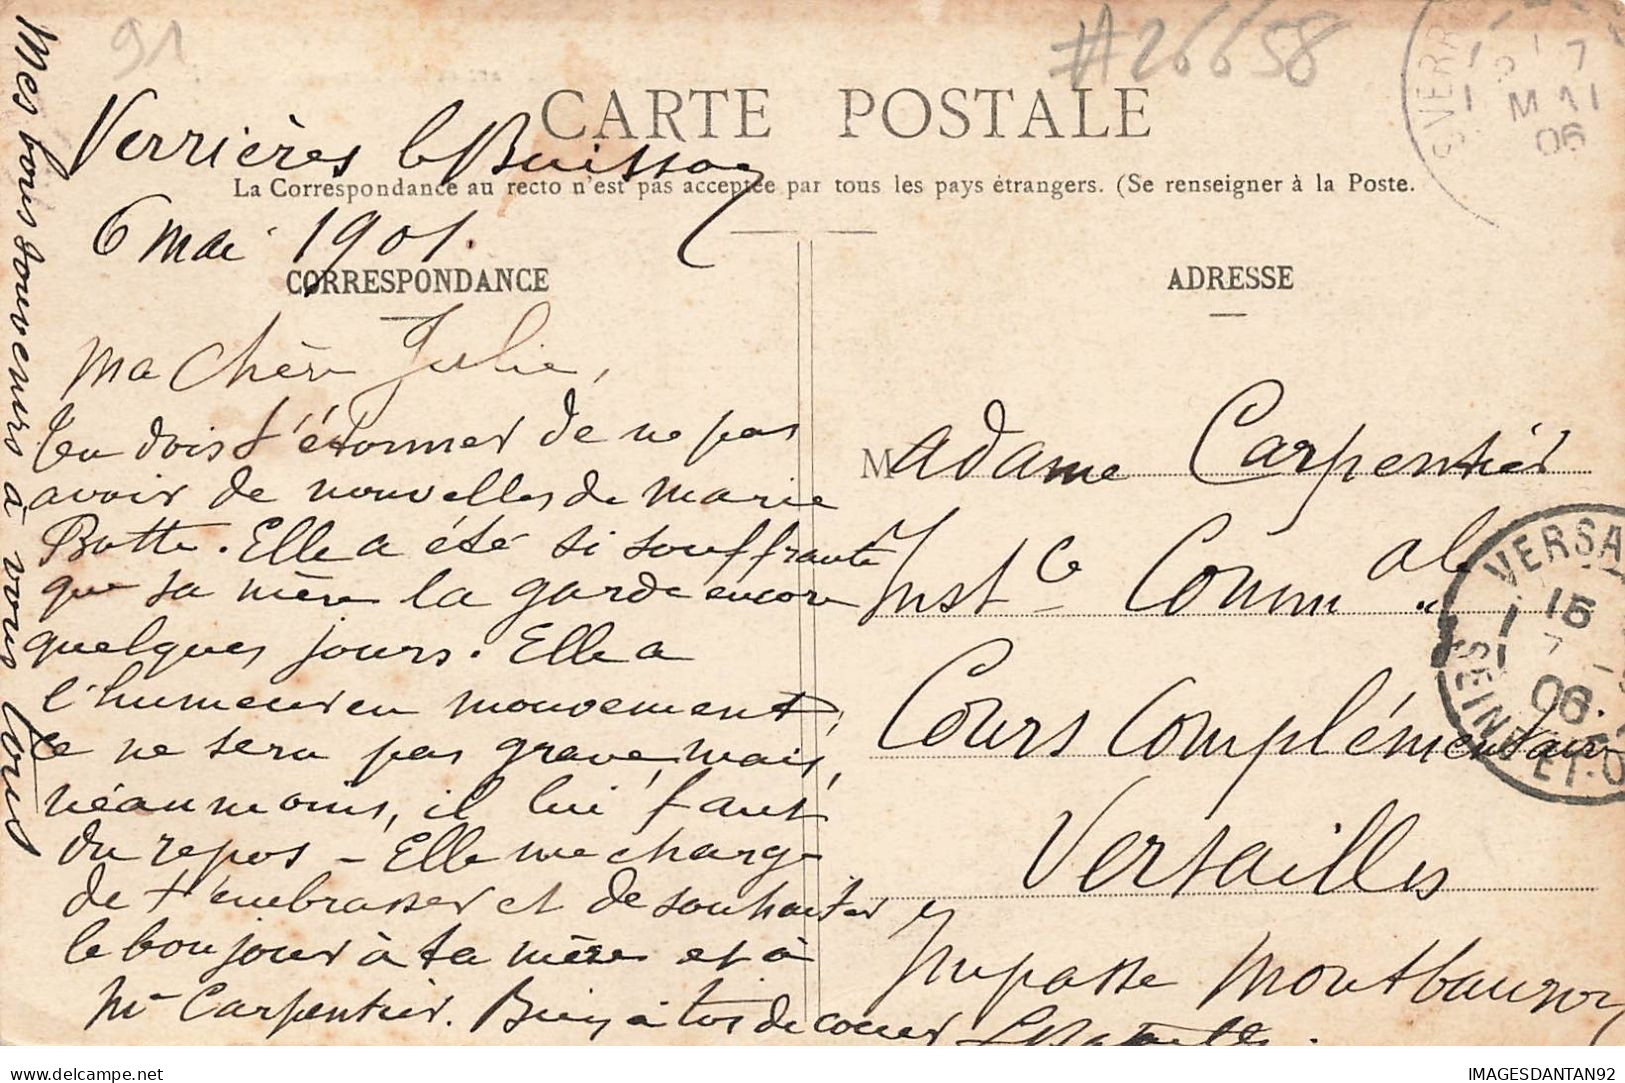 91
#26658
CARTE POSTALE
La Correspondance au recto n'est pas acceptée par tous les pays étrangers. (Se renseigner à la Poste.
Verrières le Buisson
6 mai 1901.
CORRESPONDANCE
Ma Chère Julie,
Tu dois t'étonner de ne pas
avoir de nouvelles de Marie
Botte. Elle a été si souffrante
que sa mère la garde encore
quelques jours. Elle a
l'humeur en mouvement,
Ce ne sera pas grave, mais,
néanmoins, il lui faut
du repos – Elle me charge
de t'embrasser et de souhaiter
le bonjour à ta mère et à
Mr Carpentier. Bien à toi de cœur
Mes bons souvenirs à vous tous
ADRESSE
Madame Carpentier
Instce Commale
Cours Complémentaire
Versailles
Impasse Montbauron
VERR
7
MAI
06
VERSA
15
7
06
SEINE-ET-O
IMAGESDANTAN92